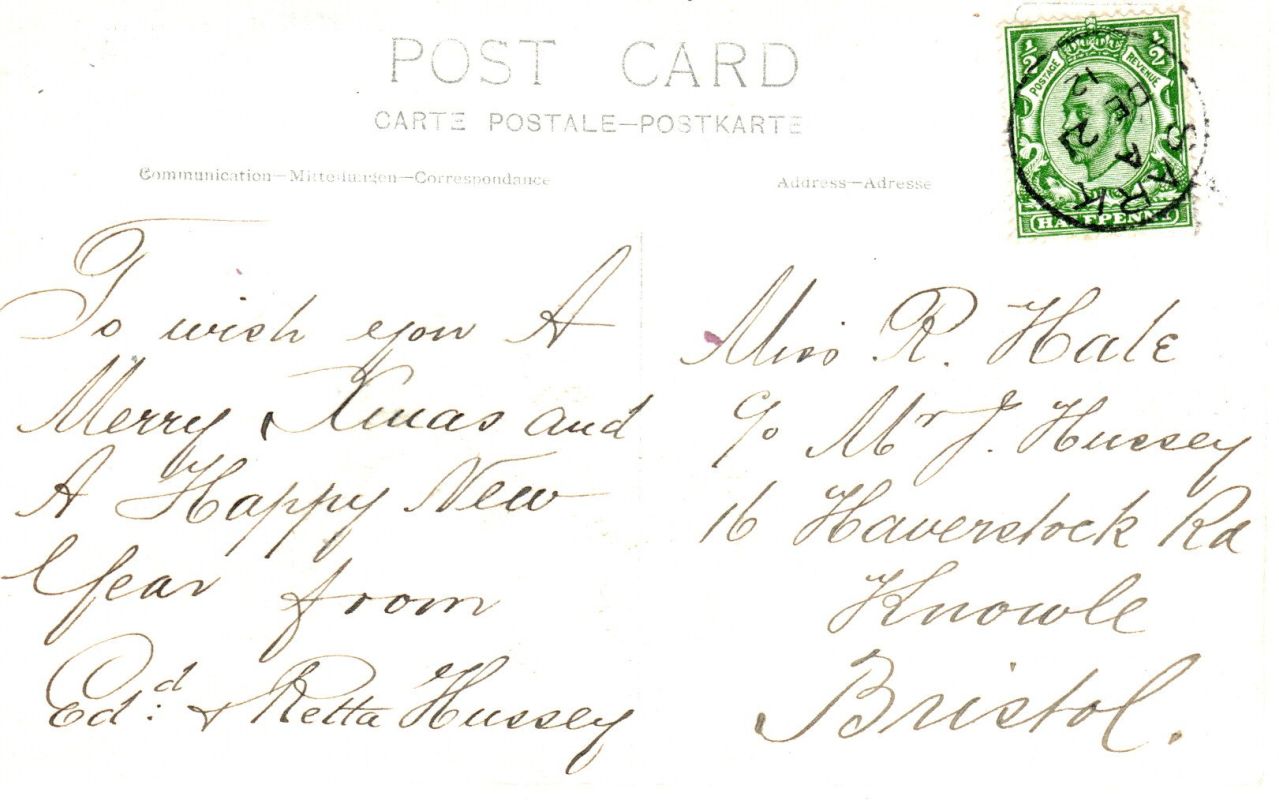 POST CARD
CARTE POSTALE—POSTKARTE
Communication—Mitteilungen—Correspondance
Address—Adresse
1/2 1/2
POSTAGE REVENUE
HALFPENNY
SARK
A
DE 21
12
To wish you A
Merry Xmas and
A Happy New
Year from
Edd: & Retta Hussey
Miss R. Hale
c/o Mr J. Hussey
16 Haverstock Rd
Knowle
Bristol.